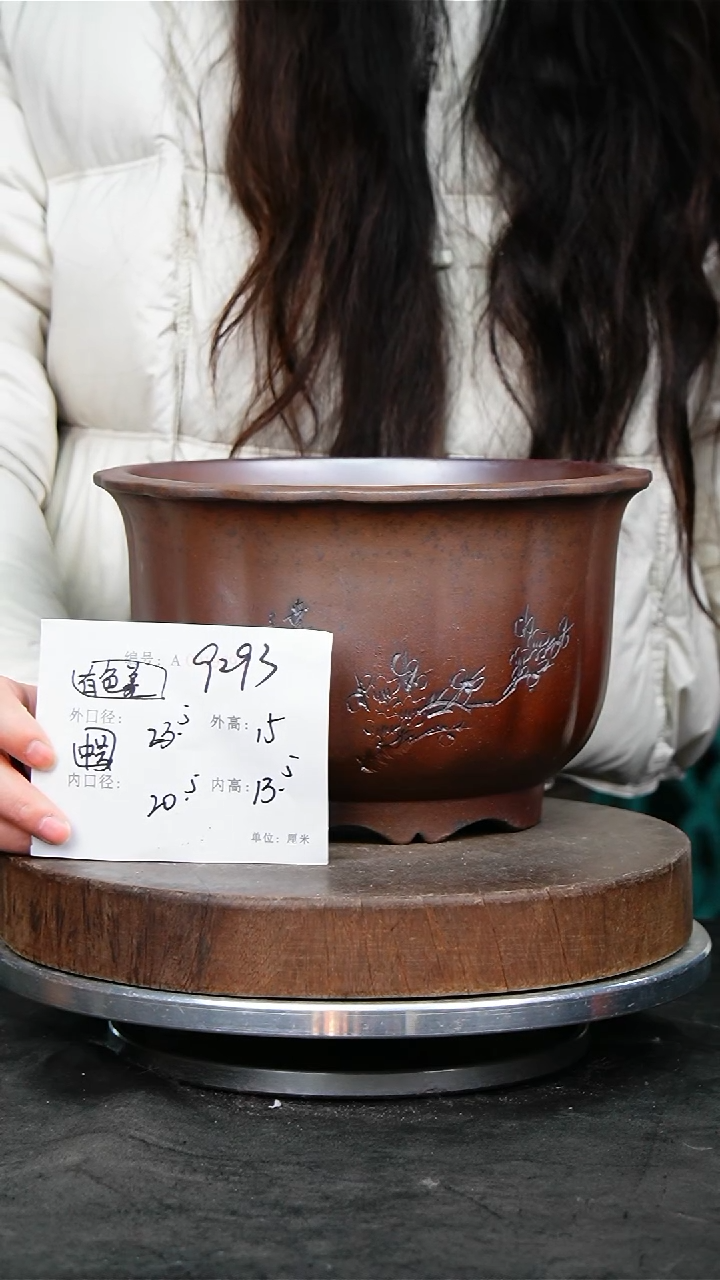 编号：A 9293
有色差
外口径： 23.5 外高： 15
内口径： 20.5 内高： 13.5
单位：厘米